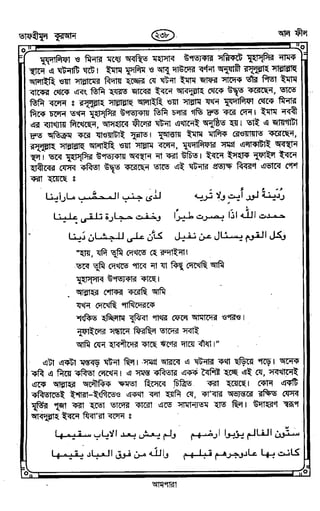 তাফহীমুল কুরআন
২৩৮
আল ফীল
মুযদালিফা ও মিনার মধ্যে অবস্থিত মহাসাব উপত্যকার সন্নিকটে মুহাসসির নামক
স্থানে এ ঘটনাটি ঘটে। ইমাম মুসলিম ও আবু দাউদের বর্ণনা অনুযায়ী রসূলুল্লাহ সাল্লাল্লাহু
আলাইহি ওয়া সাল্লামের বিদায় হজ্জের যে ঘটনা ইমাম জাফর সাদেক তাঁর পিতা ইমাম
বাকের থেকে এবং তিনি হযরত জাবের ইবনে আবদুল্লাহ থেকে উদ্ধৃত করেছেন, তাতে
তিনি বলেন : রসূলুল্লাহ সাল্লাল্লাহু আলাইহি ওয়া সাল্লাম যখন মুযদালিফা থেকে মিনার
দিকে চলেন তখন মুহাসসির উপত্যকায় তিনি চলার গতি দ্রুত করে দেন। ইমাম নববী
এর ব্যাখ্যায় লিখেছেন, আসহাবে ফীলের ঘটনা এখানেই অনুষ্ঠিত হয়। তাই এ জায়গাটা
দ্রুত অতিক্রম করে যাওয়াটাই সুন্নাত। মুআত্তায় ইমাম মালিক রেওয়ায়াত করেছেন,
রসূলুল্লাহ সাল্লাল্লাহু আলাইহি ওয়া সাল্লাম বলেন, মুযদালিফার সমগ্র এলাকাটাই অবস্থান
স্থল। তবে মুহাসসির উপত্যকায় অবস্থান না করা উচিত। ইবনে ইসহাক নুফাইল ইবনে
হাবীবের যেসব কবিতা উদ্ধৃত করেছেন তাতে এই ঘটনার প্রত্যক্ষ বিবরণ এভাবে পেশ
করা হয়েছে :
ردينة لو رأيت ولا تريه
لدى جنب المحصب ما رأينا
حمدت الله اذا بصرت طيرا
وخفت حجارة تلقى علينا
وكل القوم يسئال عن نفيل
كأن على للحبشان دينا
"হায়, যদি তুমি দেখতে হে রুদাইনা!
তবে তুমি দেখতে পাবে না যা কিছু দেখেছি আমি
মুহাসসাব উপত্যকার কাছে।
আল্লাহর শোকর করেছি আমি
যখন দেখেছি পাখিদেরকে
শংকিত হচ্ছিলাম বুঝিবা পাথর ফেলে আমাদের ওপর।
নুফাইলের সন্ধানে ফিরছিল তাদের সবাই
আমি যেন হাবশীদের কাছে ঋণের দায়ে বাঁধা।"
এটা একটা মস্তবড় ঘটনা ছিল। সমগ্র আরবে এ ঘটনার কথা ছড়িয়ে পড়ে। অনেক
কবি এ নিয়ে কবিতা লেখেন। এ সমস্ত কবিতার একক বৈশিষ্ট হচ্ছে এই যে, সবখানেই
একে আল্লাহর অলৌকিক ক্ষমতা হিসেবে চিহ্নিত করা হয়েছে। কোন একটি
কবিতাতেও ইশারা-ইংগিতেও একথা বলা হয়নি যে, কা'বার অভ্যন্তরে রক্ষিত যেসব
মূর্তির পূজা করা হতো তাদের কারো এতে সামান্যতম হাত ছিল। উদাহরণ স্বরূপ
আবদুল্লাহ ইবনে যিবা'রা বলেন :
ستون الفالم يؤبوا ارضهم
ولم يعش بعد الاياب سقيمها
كانت بها عاد وجرهم قبلهم
والله من فوق العباد يقيمها
আমপারা